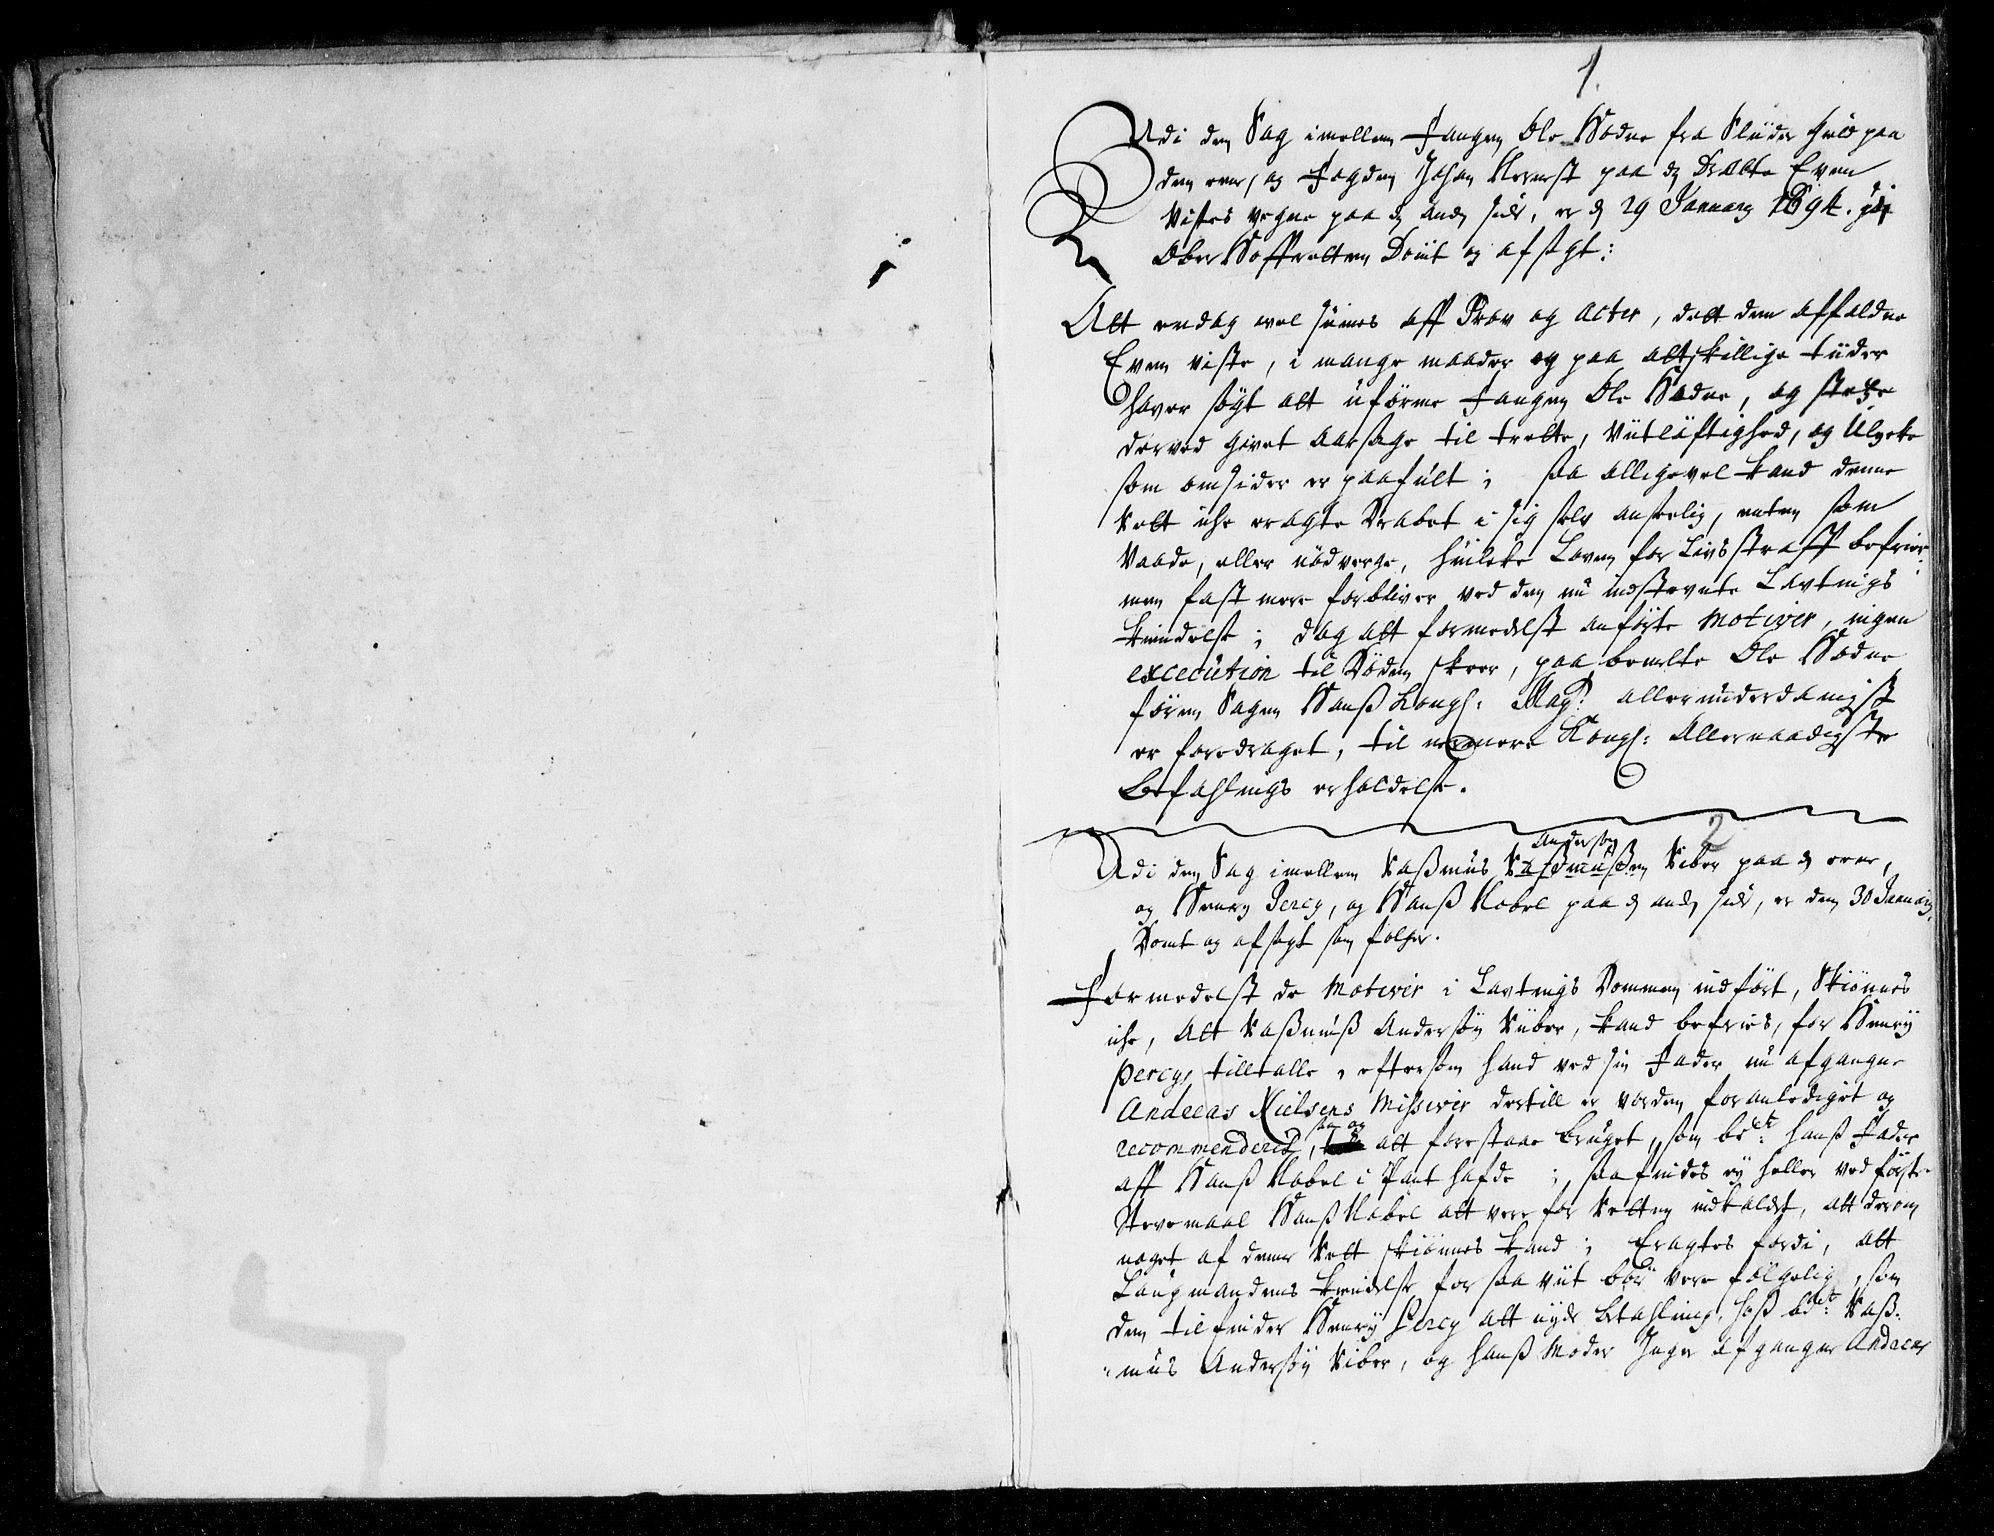 1.
Udi den Sag imellem Fangen Ole Hodne fra Sluder Guld paa
den eene, og Fogden Johan Kernst paa dend Dræbte Even
Vistes vegne paa dend anden side, er dend 29 January 1694. udj
Ober Hoffretten Dömt og afsagt:
Alt endog vel siunes aff Prov og Acter, dett den affaldne
Even viste, i mange maader og paa attskillige tiider
haver sögt att uforme Fangen Ole Hodne, og
derved givet aarsage til trette, Viitlöftighed, og Ulycke
som omsider er paafult; saa alligevel kand denne
Rett iche eragte Drabet i sig selv anseelig, enten som
Vaade, eller nödverge, huilcke Loven for Livsstraff befrier:
men fast mere forbliver ved den nu indstevnte Lavtings
kiendelse; dog att formedelst anförte Motiver, ingen
excecution til Döden skeer, paa bemelte Ole Hodne
förend Sagen Hanß Kongl: Mayt: allerunderdanigst
er foredraget, til nermere Kongl: Allernaadigste
Befahlings erholdelse.
2
Anderson
Udi den Sag imellem Raßmus Rasmußen Riber paa dend eene,
og Henry Percy, og Hanß Nobel paa dend anden side, er den 30 January
Dömt og afsagt som fölger.
Formedelst de Motiver i Lavtings Dommen indfört, Skiönnes
iche, Att Raßmuß Andersön Riiber, kand befries, for Henry
Percys tilltalle, eftersom hand ved sin Fader nu afgangne
Andreas Nielsens Missiver dertill er vorden foranlediget og
saa og
recommenderet, att forestaae bruget, som bete: hanß Fader
aff Hanß Nobel i Pant hafde; saa findes ey heller ved förste
Stevemaal Hanß Nobel att vere for Retten indkaldt, att derom
noget af denne Rett skiönnes kand; Eragtes fordi, att
Laugmandens kiendelse for saa viit bör vere fölgelig, som
den tilfinder Henry Percy att nyde betahling, hoß bete: Raß:
"mus Andersön Riber, og hanß Moder Inger afgangne Andreas